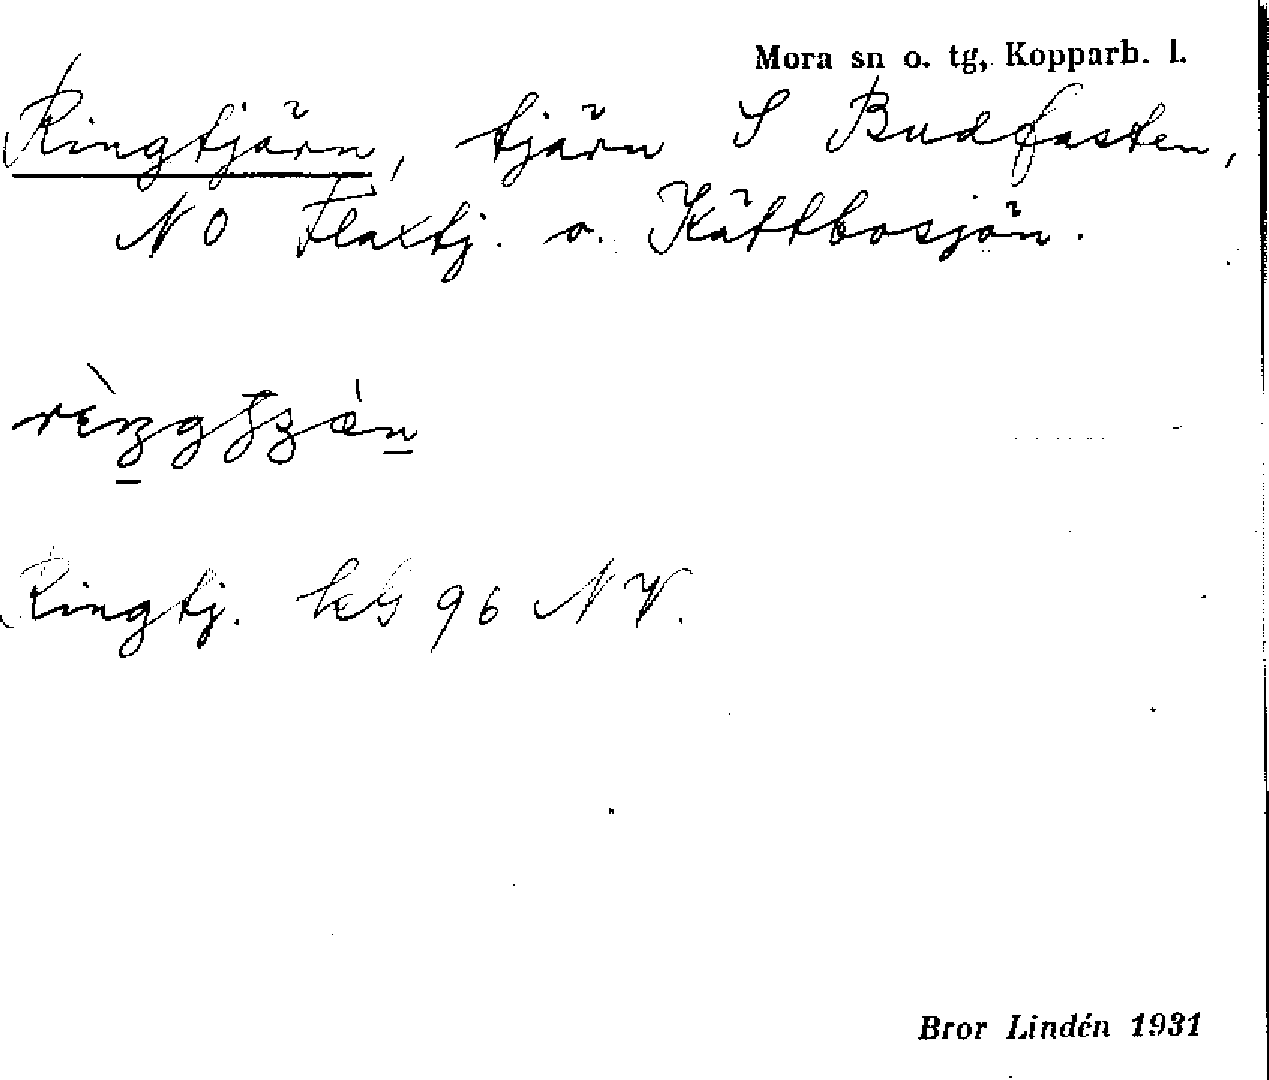 Mora sn o. tg, Kopparb. l.
Ringtjärn, tjärn S Budfasten,
NO Flaxtj. o. Kättbosjön.
Ringtj. kG 96 NV.
Bror Lindén 1931